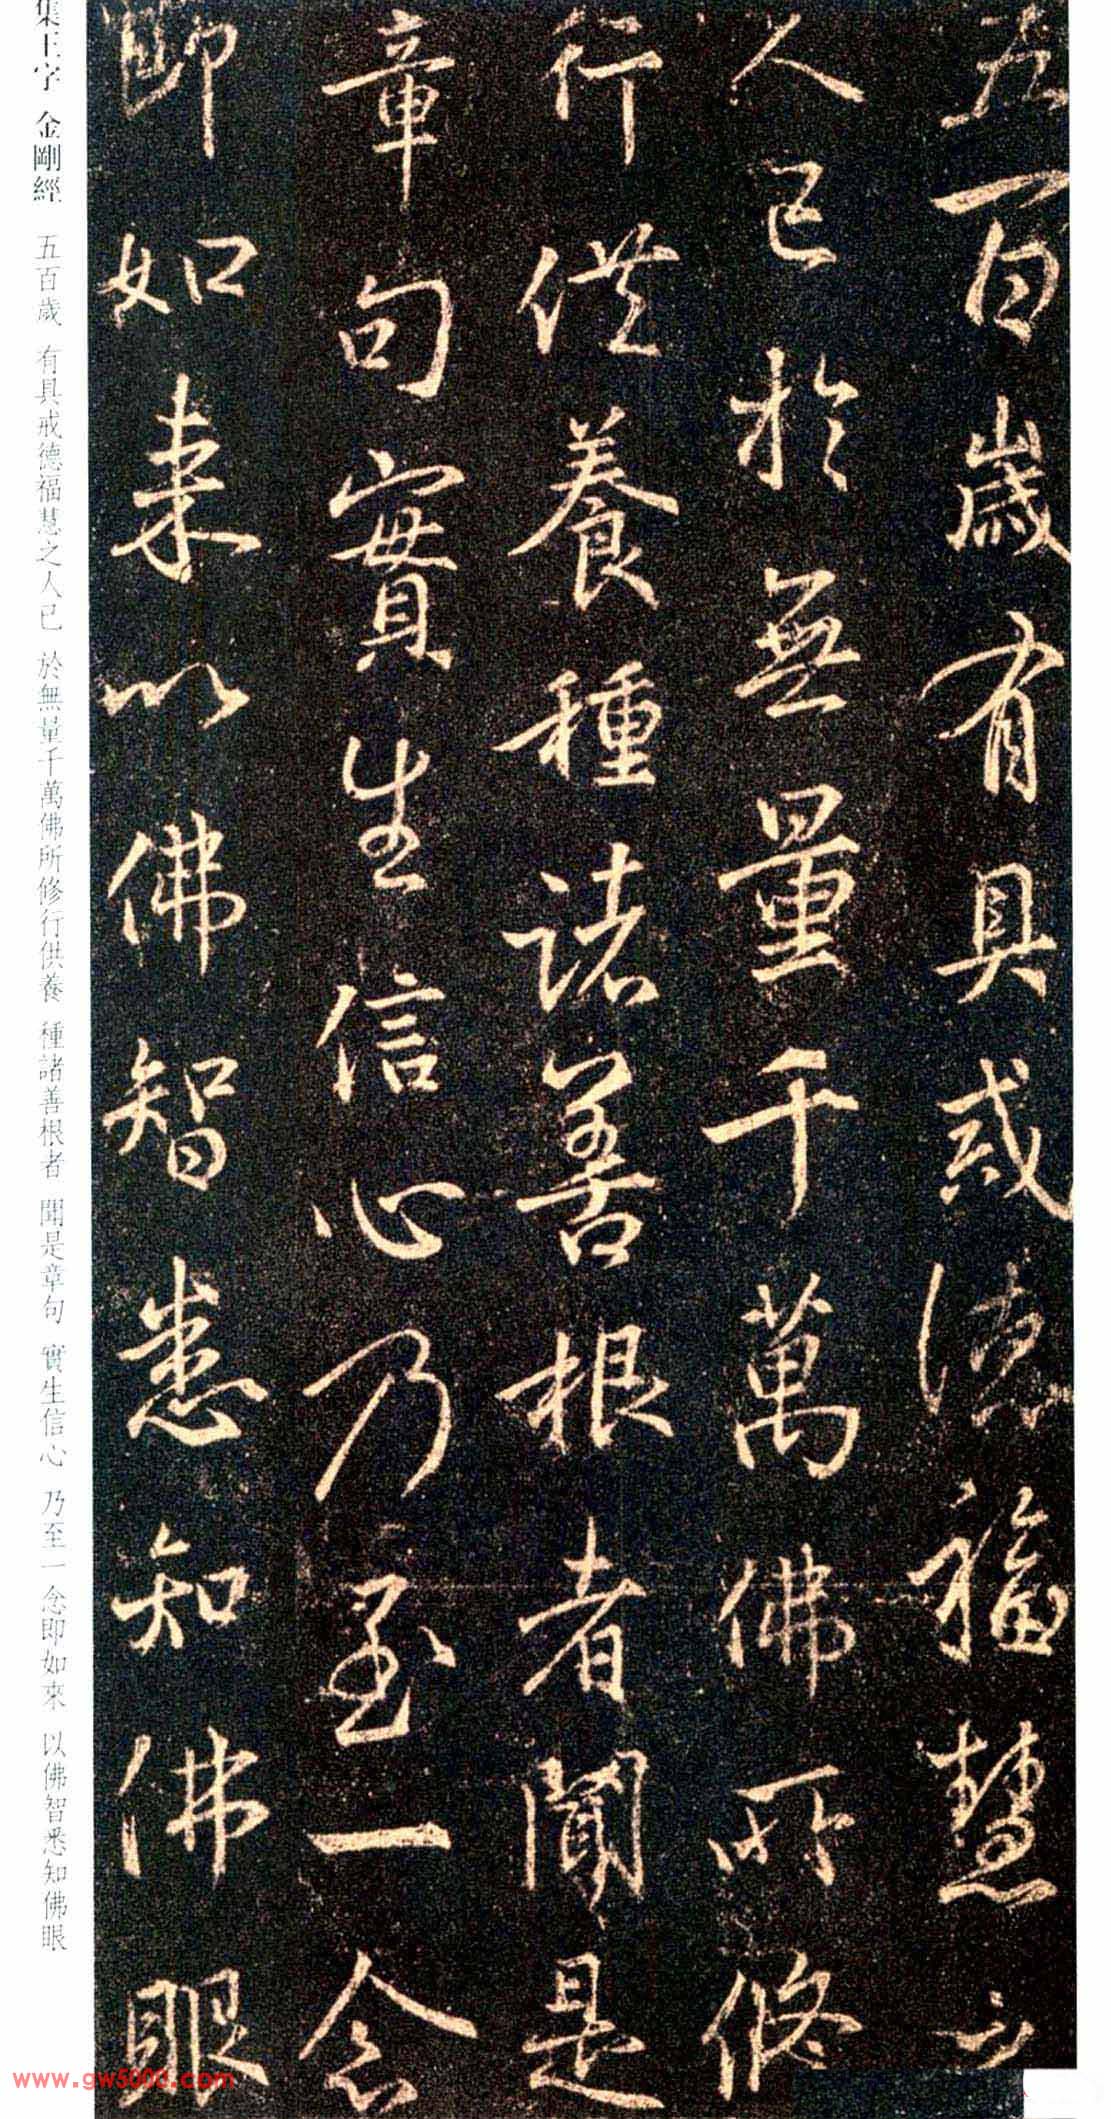 五百歲有具戒德福慧之
人已於無量千萬佛所脩
行供養種諸善根者聞是
章句實生信心乃至一念
即如来以佛智悉知佛眼
集王字 金剛經 五百歲 有具戒德福慧之人已 於無量千萬佛所修行供養 種諸善根者 聞是章句 實生信心 乃至一念即如來 以佛智悉知佛眼
www.gw5000.com